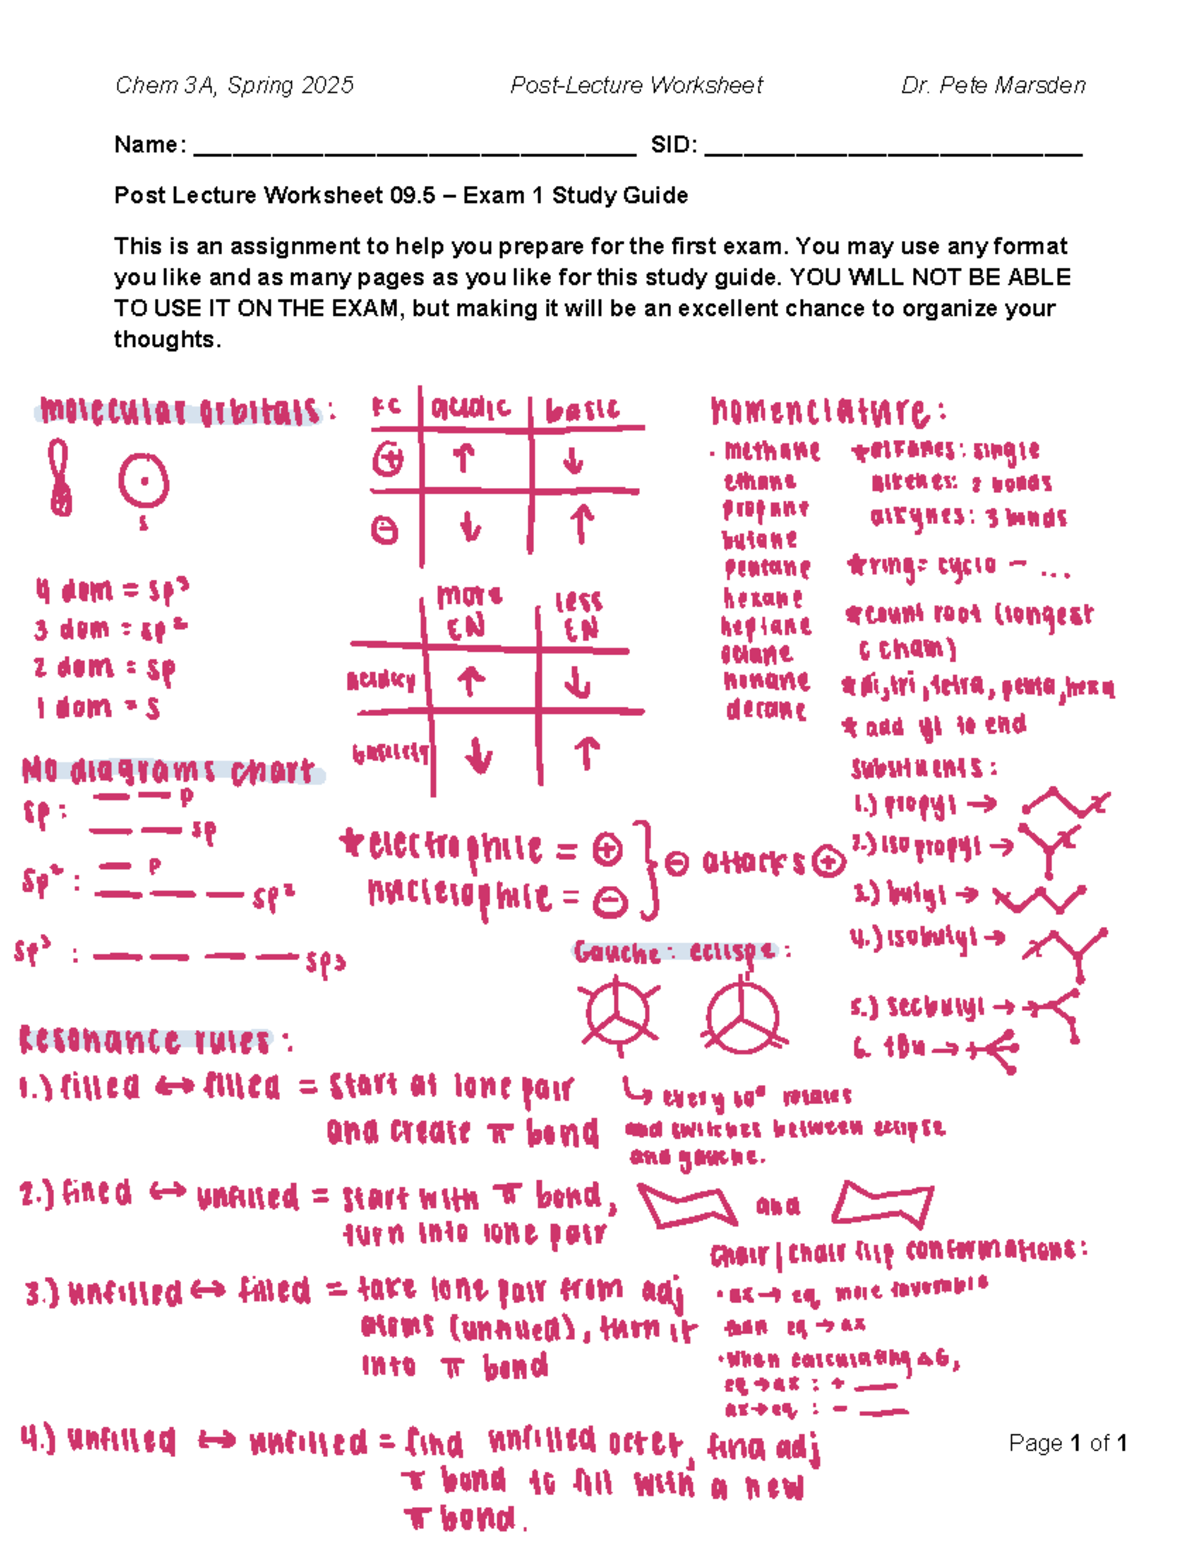 Chem 3A, Spring 2025 Post-Lecture Worksheet Dr. Pete Marsden
Name: ________________________________ SID: ___________________________
Post Lecture Worksheet 09.5 – Exam 1 Study Guide
This is an assignment to help you prepare for the first exam. You may use any format
you like and as many pages as you like for this study guide. YOU WILL NOT BE ABLE
TO USE IT ON THE EXAM, but making it will be an excellent chance to organize your
thoughts.
molecular orbitals:
s
4 dom = sp³
3 dom = sp²
2 dom = sp
1 dom = s
MO diagrams chart
sp: p
sp
sp²: p
sp²
sp³: sp3
FC acidic basic
⊕ ↑ ↓
⊖ ↓ ↑
more EN less EN
acidity ↑ ↓
basicity ↓ ↑
★electrophile = ⊕
nucleophile = ⊖
⊖ attacks ⊕
nomenclature:
· methane
ethane
propane
butane
pentane
hexane
heptane
octane
nonane
decane
★alkanes: single
alkenes: 2 bonds
alkynes: 3 bonds
★ring= cyclo – ...
★count root (longest
c chain)
★di, tri, tetra, penta, hexa
★ add yl to end
substituents:
1.) propyl →
2.) isopropyl →
3.) butyl →
4.) isobutyl →
5.) secbutyl →
6. tBu →
Gauche: eclispe:
↳ every 60° rotates
and switches between eclipse
and gauche.
and
Chair | Chair flip conformations:
· ax → eq more favorable
than eq → ax
· When calculating ΔG,
eq→ax : + ___
ax→eq : - ___
Resonance rules:
1.) filled ↔ filled = start at lone pair
and create π bond
2.) filled ↔ unfilled = start with π bond,
turn into lone pair
3.) unfilled ↔ filled = take lone pair from adj
atoms (unfilled), turn it
into π bond
4.) unfilled ↔ unfilled = find unfilled octet, find adj
π bond to fill with a new
π bond.
Page 1 of 1